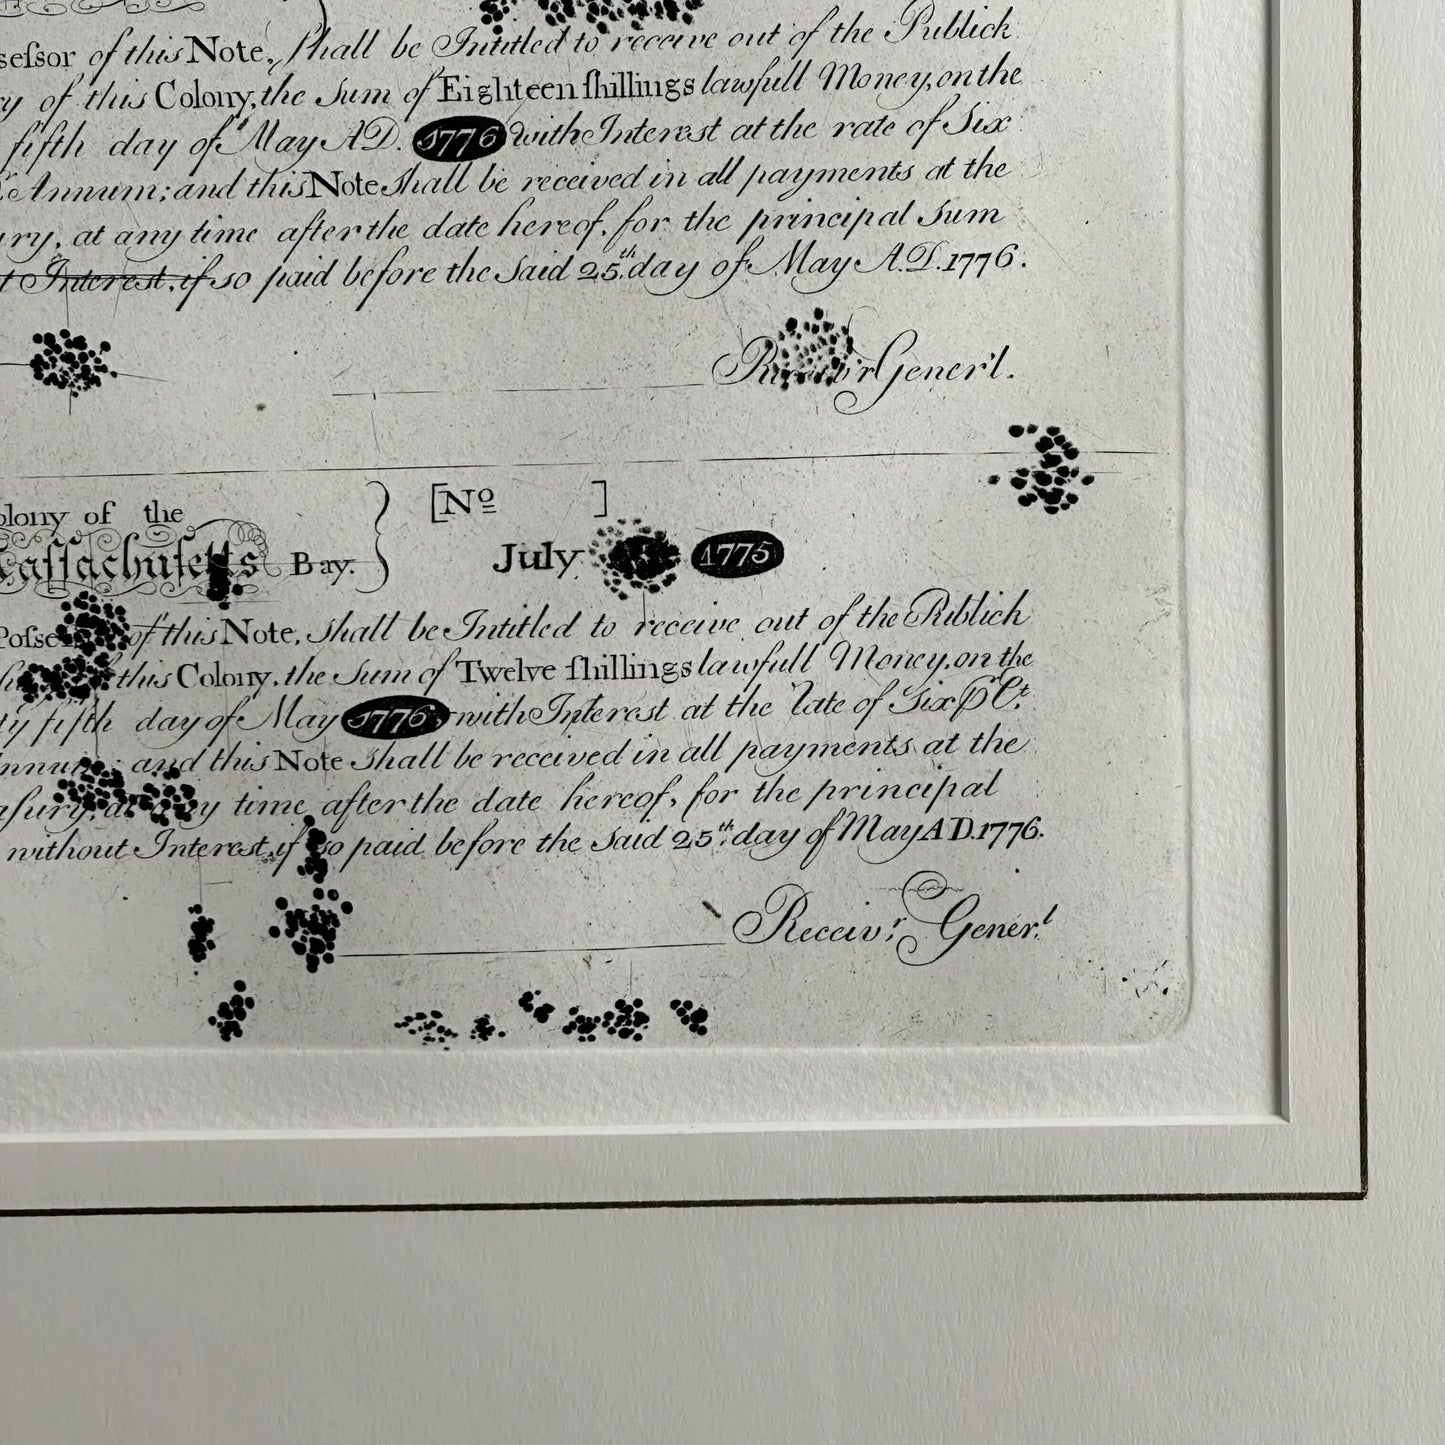 seſsor of this Note, ſhall be Intitled to receive out of the Publick
ry of this Colony, the Sum of Eighteen ſhillings lawfull Money, on the
fifth day of May A.D. 1776 with Interest at the rate of Six
Annum; and this Note Shall be received in all payments at the
ury, at any time after the date hereof, for the principal Sum
t Interest, if so paid before the Said 25.th day of May A.D. 1776.
Receiv'r Gener'l.
olony of the
[No ]
aſſachuſetts Bay.
July 1775
Poſse of this Note, Shall be Intitled to receive out of the Publick
this Colony, the Sum of Twelve ſhillings lawfull Money, on the
ty fifth day of May 1776 with Interest at the Rate of Six P Ct.
nnum; and this Note Shall be received in all payments at the
aſury, at any time after the date hereof, for the principal
without Interest, if so paid before the Said 25th. day of May A D. 1776.
Receiv.r Gener.l